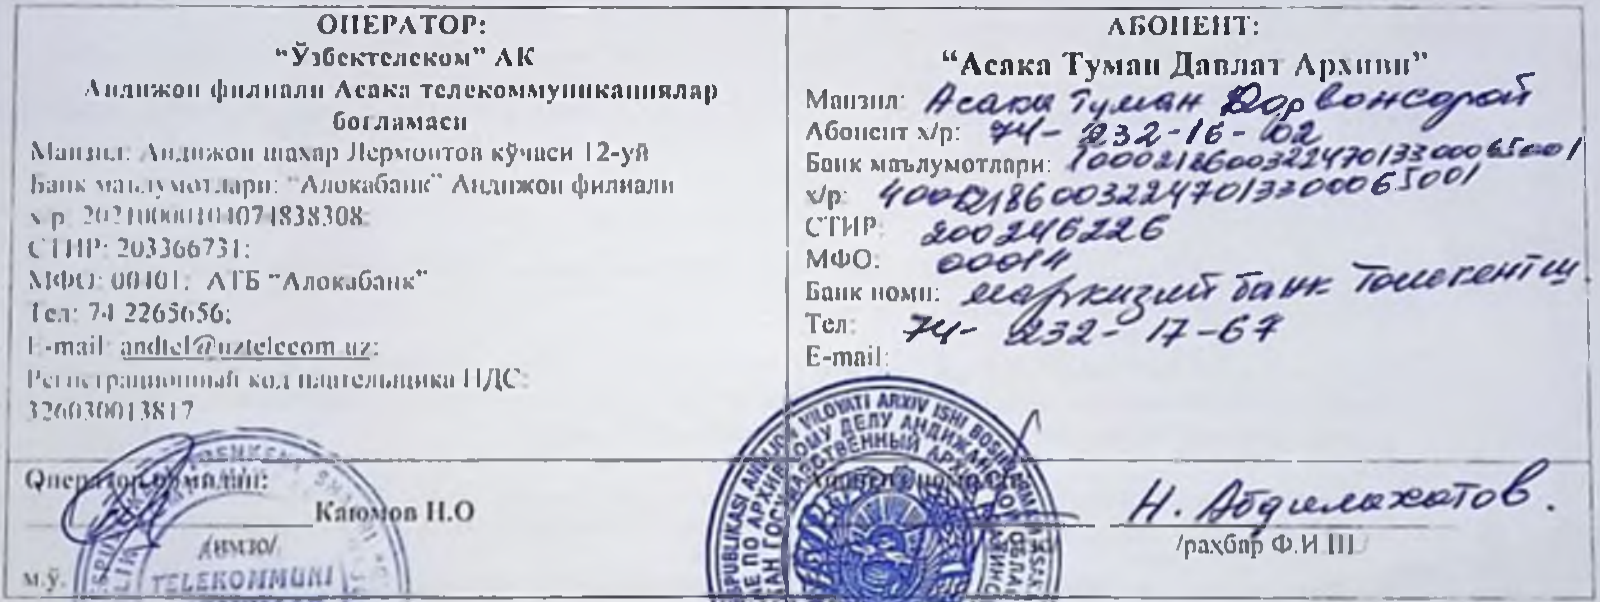 ОПЕРАТОР:
“Ўзбектелеком” АК
Андижон филиали Асака телекоммуникациялар
боғламаси
Манзил: Андижон шаҳар Лермонтов кўчаси 12-уй
Банк маълумотлари: “Алоқабанк” Андижон филиали
х/р: 20210000104074838308;
СТИР: 203366731;
МФО: 00401; АТБ “Алоқабанк”
Тел: 74 2265656;
E-mail: andtel@uztelecom.uz;
Регистрационный код плательщика НДС:
326030013817
Оператор номидан:
Каюмов Н.О
/имзо/
м.ў.
TELEKOMMUNI
АБОНЕНТ:
“Асака Туман Давлат Архиви”
Манзил: Асака туман
Абонент х/р: 74-232-16-02
Банк маълумотлари:
х/р: 400021860032247013300065001
СТИР: 200246226
МФО: 00014
Банк номи: Марказий банк Тошкент ш.
Тел: 74-232-17-67
E-mail:
Н. Абдилахатов.
/раҳбар Ф.И.Ш/